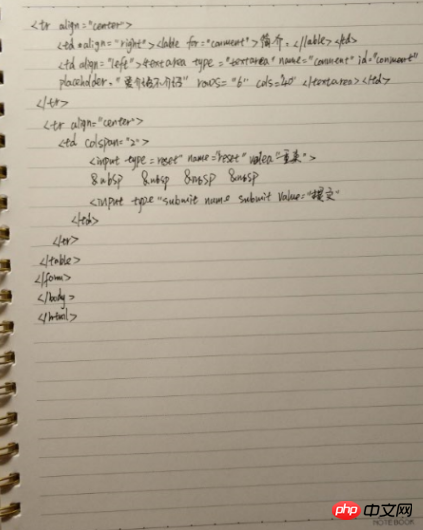 <tr align="center">
<td align="right"><lable for="comment">简介:</lable></td>
<td align="left"><textarea type="textarea" name="comment" id="comment"
placeholder="爱介绍不介绍" rows="6" cols="40" </textarea></td>
</tr>
<tr align="center">
<td colspan="2">
<input type=reset" name="reset" "重来">
&nbsp &nbsp &nbsp &nbsp
<input type "submit name submit value="提交"
</td>
</tr>
</table>
</form>
</body>
</html>
php 中文网
NOTEBOOK